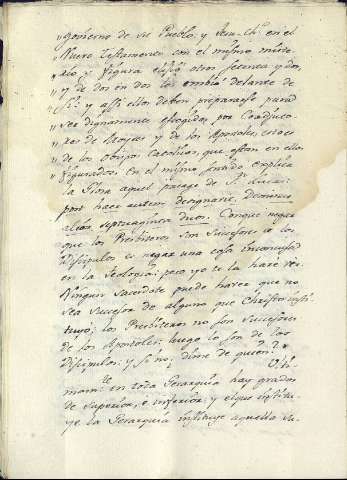 „govierno de su Pueblo; y Jesu-Chto en el
„Nuevo Testamento con el mismo miste-
„rio y figura eligió otros setenta y dos,
„y de dos en dos los embió delante de
„sí: y assi ellos deben prepararse para
„ser dignamente elegidos por Coadjuto-
„res de Moyses y de los Apostoles, esto es
„de los Obispos Catolicos, que estan en ellos
„figurados. En el mismo sentido explica
la Glosa aquel pasage de Sn Lucas:
post haec autem designavit Dominus
alios septuaginta duos. Conque negar
que los Presbiteros son Successores de los
Discipulos es negar una cosa inconcusa
en la Teologia: pero yo te la haré ver.
Ningun Sacerdote puede haver que no
sea successor de alguno que Christo insti-
tuyó; los Presbiteros no son successores
de los Apostoles: luego lo son de los
Discipulos: y si nó; dime de quien?
en toda Gerarquía hay grados
de superior, è inferior, y el que institu-
ye la Gerarquía instituye aquella su-